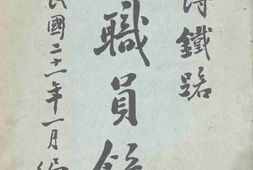 鐵路
職員錄
民國二十一年一月編